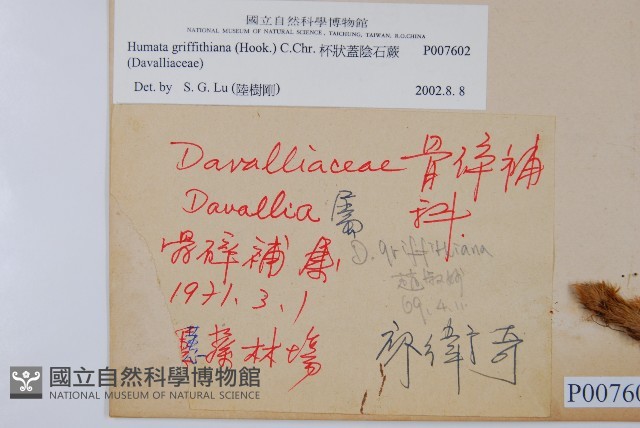 國立自然科學博物館
NATIONAL MUSEUM OF NATURAL SCIENCE, TAICHUNG, TAIWAN, R.O.CHINA
Humata griffithiana (Hook.) C.Chr. 杯狀蓋陰石蕨 P007602
(Davalliaceae)
Det. by S. G. Lu (陸樹剛) 2002.8. 8
Davalliaceae 骨碎補
Davallia 屬 科
骨碎補 屬
D. griffithiana
1971.3.1
69.4.
林場
國立自然科學博物館
NATIONAL MUSEUM OF NATURAL SCIENCE
P00760